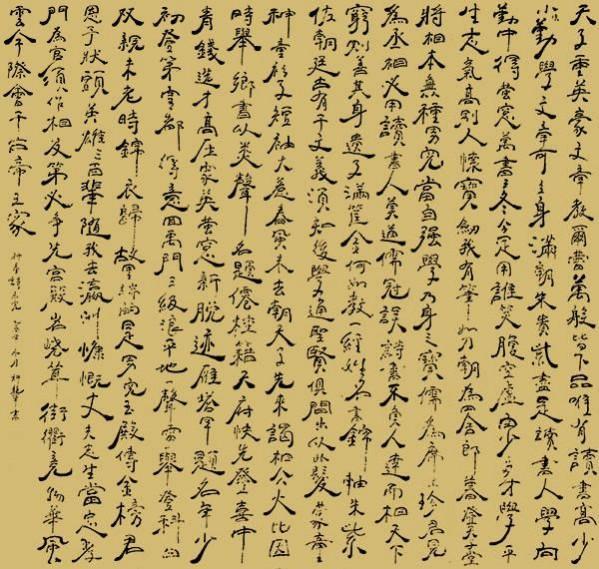 天子重英豪文章教爾曹萬般皆下品唯有讀書高少
小勤學文章可立身滿朝朱貴紫盡是讀書人學向
勤中得螢窓萬書冬今足用誰笑腹空虛自少多才學平
生志氣高別人懷寶劍我有筆如刀朝為田舍郎暮登天堂
將相本無種男兒當自强學乃身之寶儒為席上珍君見
為丞相必用讀書人莫道儒冠誤詩書不負人達而相天下
窮則善其身遺子滿籯金何如教一經姓名書錦軸朱紫
佐朝廷古有千文義須知後學通聖賢俱間出以此發蒙童
神童衫子短袖大惹春風未去朝天子先來謁相公大比因
時舉鄉書以類聲名題僊桂籍天府快先登喜中
青錢選才高压衆英螢窓新脫迹雁塔早題名年少
初登第皇都得意回禹門三級浪平地一聲雷舉登科
双親未老時錦衣歸故里端的是男兒玉殿傳金榜君
恩予狀頭英雄三百輩隨我去瀛洲慷慨丈夫志生當忠孝
門為官須作相及第必爭先宮殿岧嶢聳街衢竞物華風
雲今際會千古帝王家